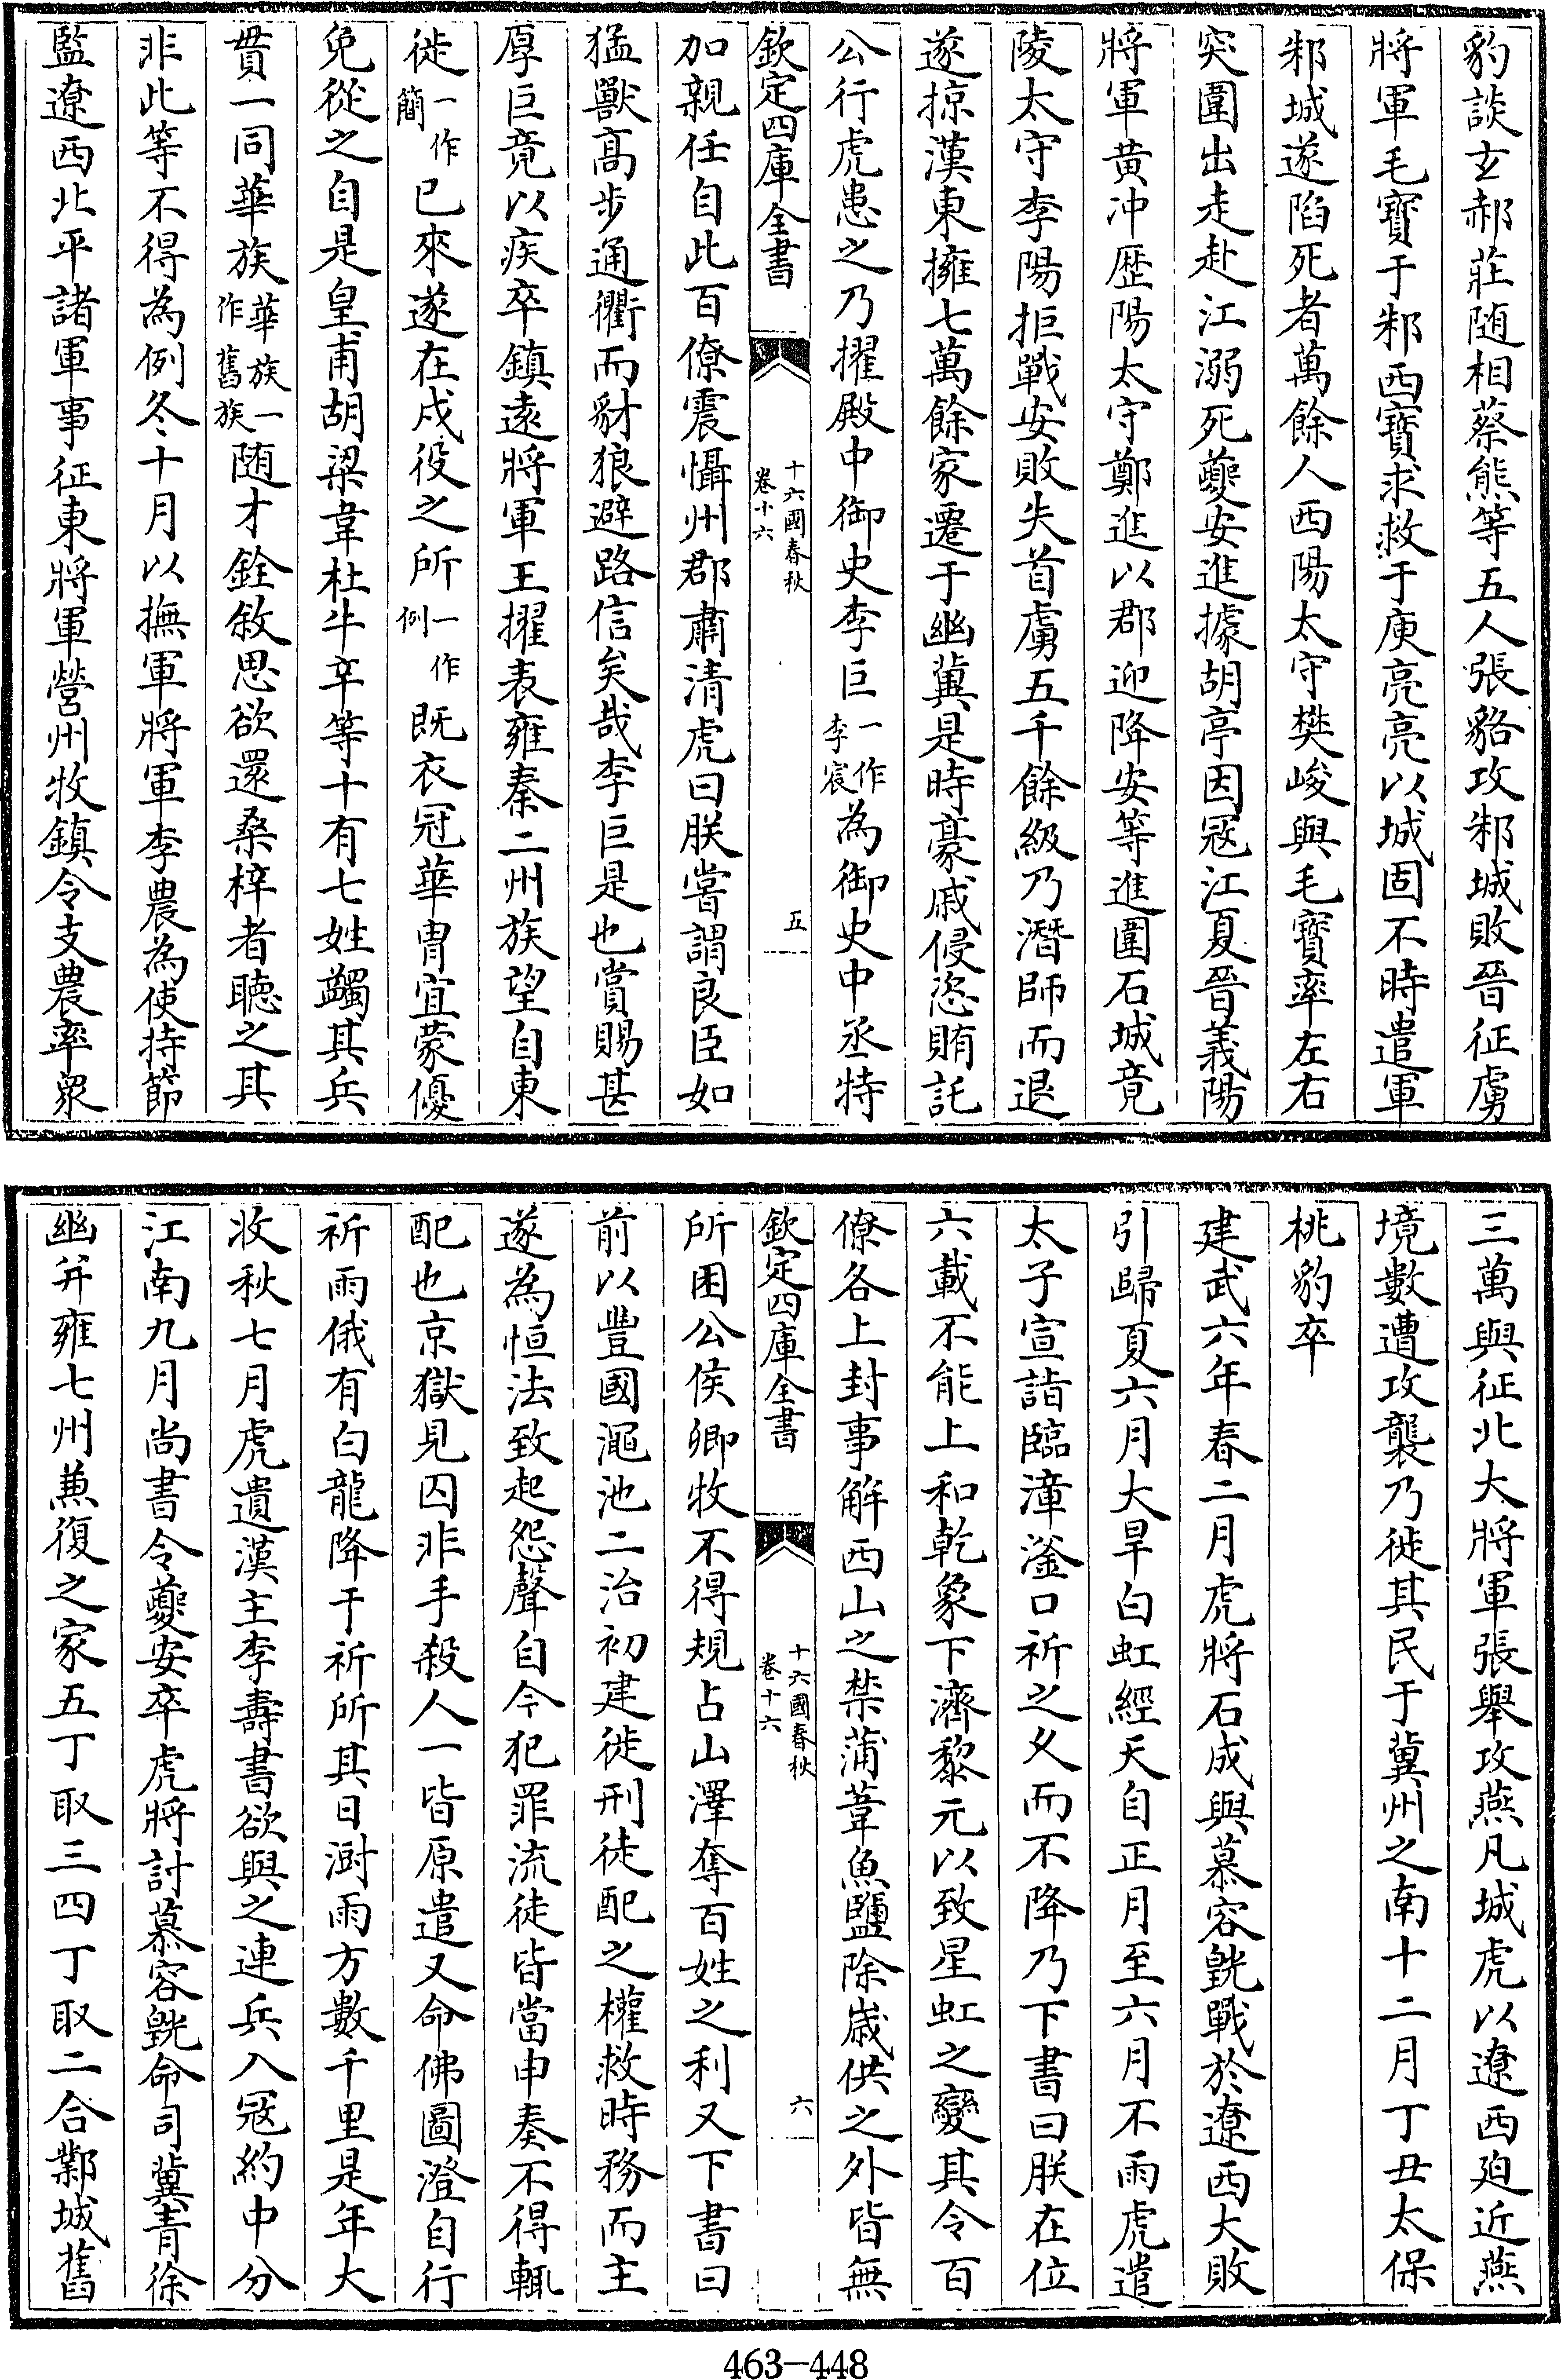 豹談玄郝莊随相蔡熊等五人張貉攻邾城敗晉征虜
將軍毛寶于邾西寶求救于庾亮亮以城固不時遣軍
邾城遂陷死者萬餘人西陽太守樊峻與毛寶率左右
突圍出走赴江溺死夔安進據胡亭因冦江夏晉義陽
將軍黄冲歴陽太守鄭進以郡迎降安等進圍石城竟
陵太守李陽拒戰安敗失首虜五千餘級乃潛師而退
遂掠漢東擁七萬餘家遷于幽冀是時豪戚侵恣賄託
公行虎患之乃擢殿中御史李巨一作李宸為御史中丞特
欽定四庫全書 十六國春秋 卷十六 五
加親任自此百僚震懾州郡肅清虎曰朕嘗謂良臣如
猛獸高步通衢而豺狼避路信矣哉李巨是也賞賜甚
厚巨竟以疾卒鎮遠將軍王擢表雍秦二州族望自東
徙一作簡已來遂在戍役之所一作例既衣冠華胄宜蒙優
免從之自是皇甫胡梁韋杜牛辛等十有七姓蠲其兵
貫一同華族華族一作舊族随才銓敘思欲還桑梓者聽之其
非此等不得為例冬十月以撫軍將軍李農為使持節
監遼西北平諸軍事征東將軍營州牧鎮令支農率衆
三萬與征北大將軍張舉攻燕凡城虎以遼西廹近燕
境數遭攻襲乃徙其民于冀州之南十二月丁丑太保
桃豹卒
建武六年春二月虎將石成與慕容皝戰於遼西大敗
引歸夏六月大旱白虹經天自正月至六月不雨虎遣
太子宣詣臨漳滏口祈之久而不降乃下書曰朕在位
六載不能上和乾象下濟黎元以致星虹之變其令百
僚各上封事解西山之禁蒲葦魚鹽除歲供之外皆無
欽定四庫全書 十六國春秋 卷十六 六
所困公侯卿牧不得規占山澤奪百姓之利又下書曰
前以豐國澠池二治初建徙刑徒配之權救時務而主
遂為恒法致起怨聲自今犯罪流徒皆當申奏不得輒
配也京獄見囚非手殺人一皆原遣又命佛圖澄自行
祈雨俄有白龍降于祈所其日澍雨方數千里是年大
收秋七月虎遺漢主李壽書欲與之連兵入冦約中分
江南九月尚書令夔安卒虎將討慕容皝命司冀青徐
幽并雍七州兼復之家五丁取三四丁取二合鄴城舊
463-448